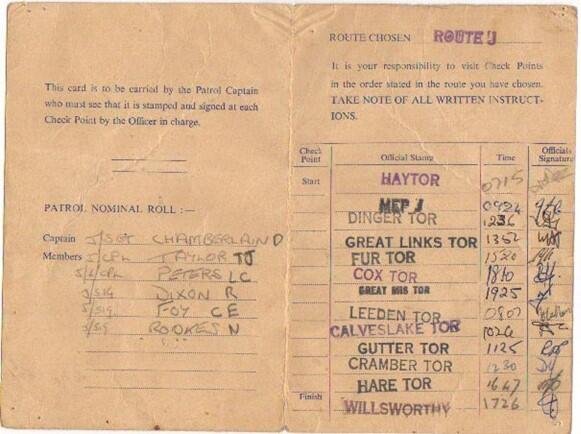 This card is to be carried by the Patrol Captain
who must see that it is stamped and signed at each
Check Point by the Officer in charge.
PATROL NOMINAL ROLL :—
Captain J/SGT CHAMBERLAIN D
Members J/CPL TAYLOR TJ
J/L/CPL PETERS LC
J/SIG DIXON R
J/SIG FOY C E
J/SIG ROOKES N
ROUTE CHOSEN ROUTE J
It is your responsibility to visit Check Points
in the order stated in the route you have chosen.
TAKE NOTE OF ALL WRITTEN INSTRUCT-
IONS.
Check Point Official Stamp Time Officials Signature
Start HAYTOR 0715
MEP J 0924
DINGER TOR 1236
GREAT LINKS TOR 1352
FUR TOR 1520
COX TOR 1810
GREAT MIS TOR 1925
LEEDEN TOR 0807
CALVESLAKE TOR 1026
GUTTER TOR 1125
CRAMBER TOR 1230
HARE TOR 1647
Finish WILLSWORTHY 1726